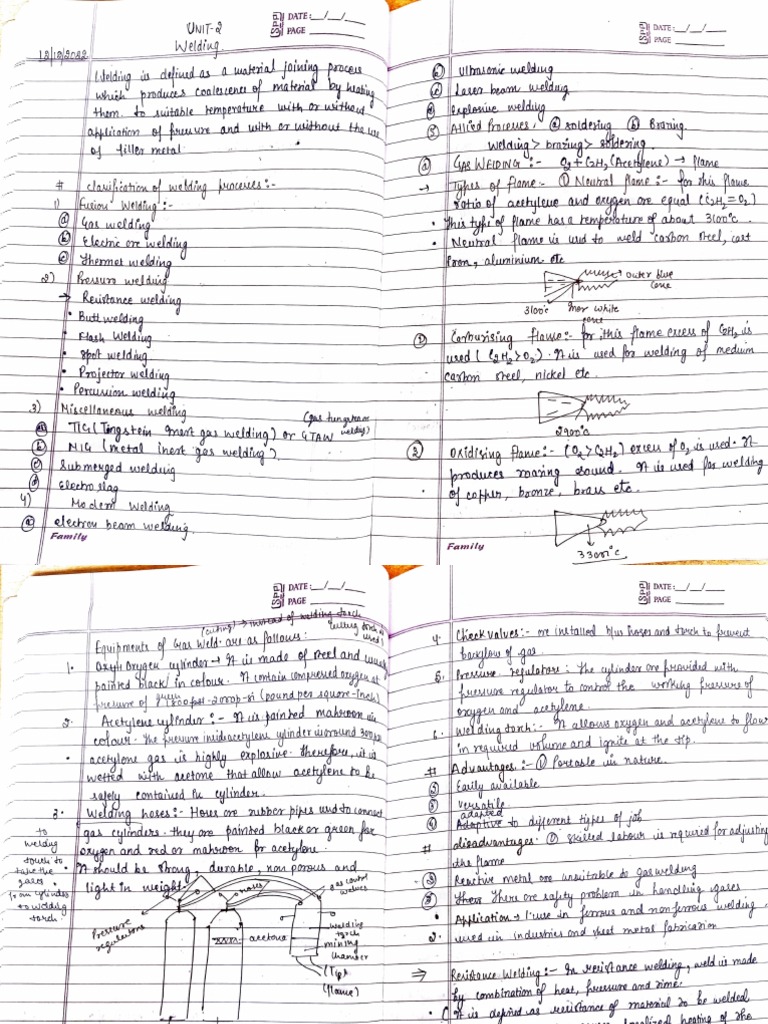 DATE: __/__/__
PAGE
UNIT-2
12/12/2022
Welding
Welding is defined as a material joining process
which produces coalescence of material by heating
them to suitable temperature with or without
application of pressure and with or without the use
of filler metal.
# clarification of welding processes:-
1) Fusion Welding:-
(a) Gas welding
(b) Electric arc welding
(c) Thermet welding
2) Pressure welding
→ Resistance welding
• Butt welding
• Flash Welding
• Spot welding
• Projector welding
• Percussion welding
3) Miscellaneous welding
(a) TIG (Tungstein inert gas welding) or GTAW (gas tungsten welding)
(b) MIG (metal inert gas welding)
(c) Submerged welding
(d) Electro slag
4) Modern Welding
(a) electron beam welding.
Family
DATE: __/__/__
PAGE
(b) Ultrasonic welding
(c) Laser beam welding
(d) Explosive welding
5) Allied Processes. (a) soldering (b) Brazing.
welding > brazing > soldering
(a) GAS WELDING:- O2 + C2H2 (Acetylene) → flame
→ Types of flame:- (1) Neutral flame:- for this flame
ratio of acetylene and oxygen are equal (C2H2 = O2)
• This type of flame has a temperature of about 3100°C.
• Neutral flame is used to weld carbon steel, cast
Iron, aluminium etc
outer blue
cone
3100°C
Iner white
cone
(2) Carburising flame:- for this flame excess of C2H2 is
used (C2H2 > O2). It is used for welding of medium
carbon steel, nickel etc.
2900°C
(3) Oxidising flame:- (O2 > C2H2) excess of O2 is used. It
produces roaring sound. It is used for welding
of copper, bronze, brass etc.
3300°C
Family
(cutting) → instead of welding torch
cutting torch is
used
Equipments of Gas Weld. are as follows:
1. Oxygen cylinder → It is made of steel and
painted black in colour. It contain compressed oxygen at
pressure of 1800psi-2000psi (pound per square-inch)
2. Acetylene cylinder:- It is painted mahroon in
colour. The pressure inside acetylene cylinder is around 300psi
• acetylene gas is highly explosive. Therefore, it is
wetted with acetone that allow acetylene to be
safely contained in cylinder.
3. Welding hoses:- Hoses are rubber pipes used to connect
gas cylinders. they are painted black or green for
oxygen and red or mahroon for acetylene.
• It should be strong, durable, non porous and
light in weight.
to
welding
torch to
take the
gases
from cylinder
to welding
torch.
Pressure
regulators
hoses
gas control
valves
acetone
welding
torch
mixing
chamber
(Tip)
(flame)
DATE: __/__/__
PAGE
4. Check valves:- are installed b/w hoses and torch to prevent
backflow of gas
5. Pressure regulators: The cylinder are provided with
pressure regulator to control the working pressure of
oxygen and acetylene.
6. Welding torch:- It allows oxygen and acetylene to flow
in required volume and ignite at the tip.
# Advantages:- (1) Portable in nature.
(2) Easily available
(3) versatile
adapted
(4) Adaptive to different types of job
# disadvantages. (1) skilled labour is required for adjusting
the flame
(2) Reactive metal are unsuitable to gas welding
(3) There are safety problem in handling gases
• Application → 1. use in ferrous and non ferrous welding
2. used in industries and sheet metal fabrication
⇒ Resistance Welding:- In resistance welding, weld is made
by combination of heat, pressure and time.
• It is defined as resistance of material to be welded
localized heating of the